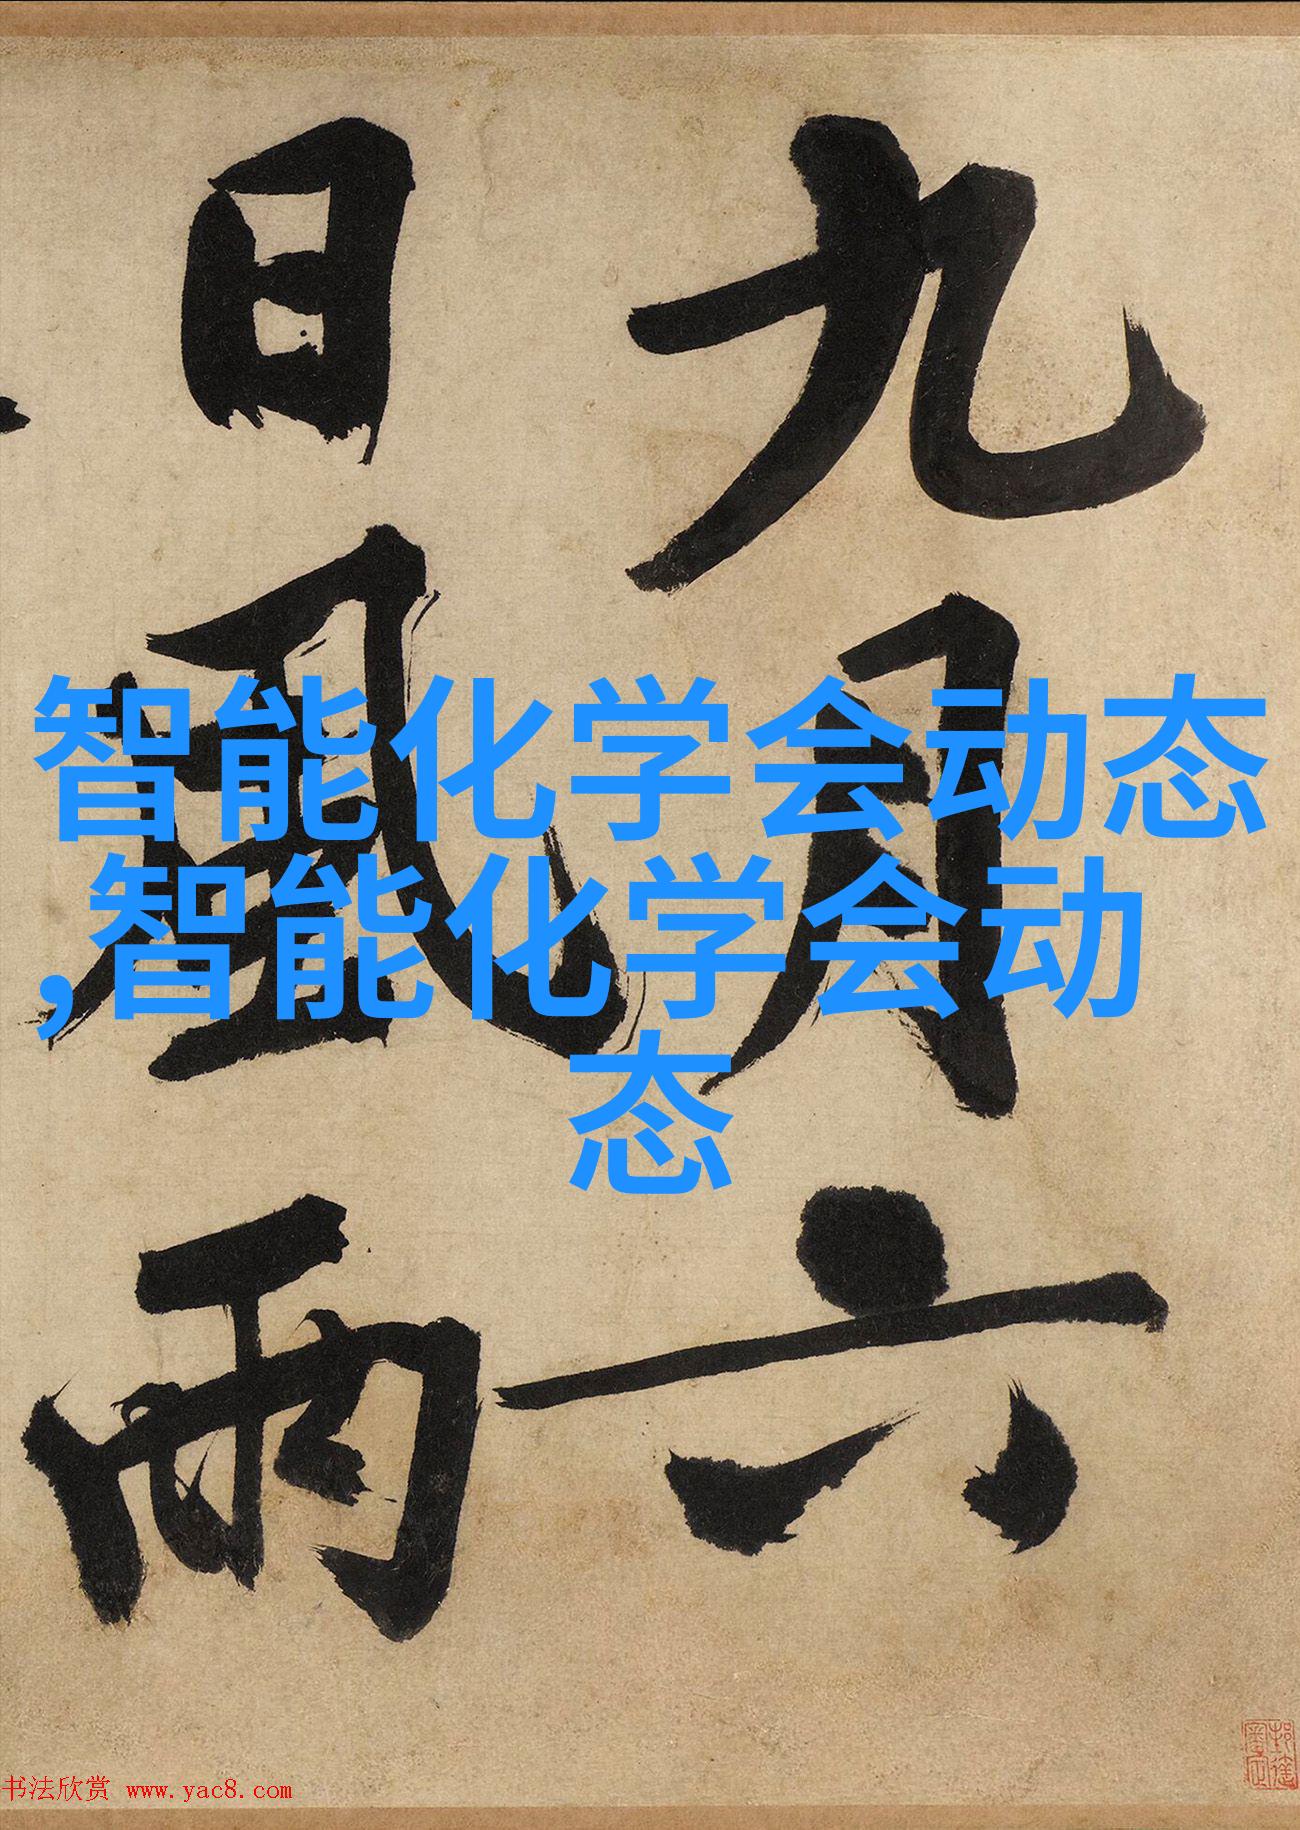 九月六
日風雨
智能化学会动态
,智能化学会动
态
书法欣赏 www.yac8.com